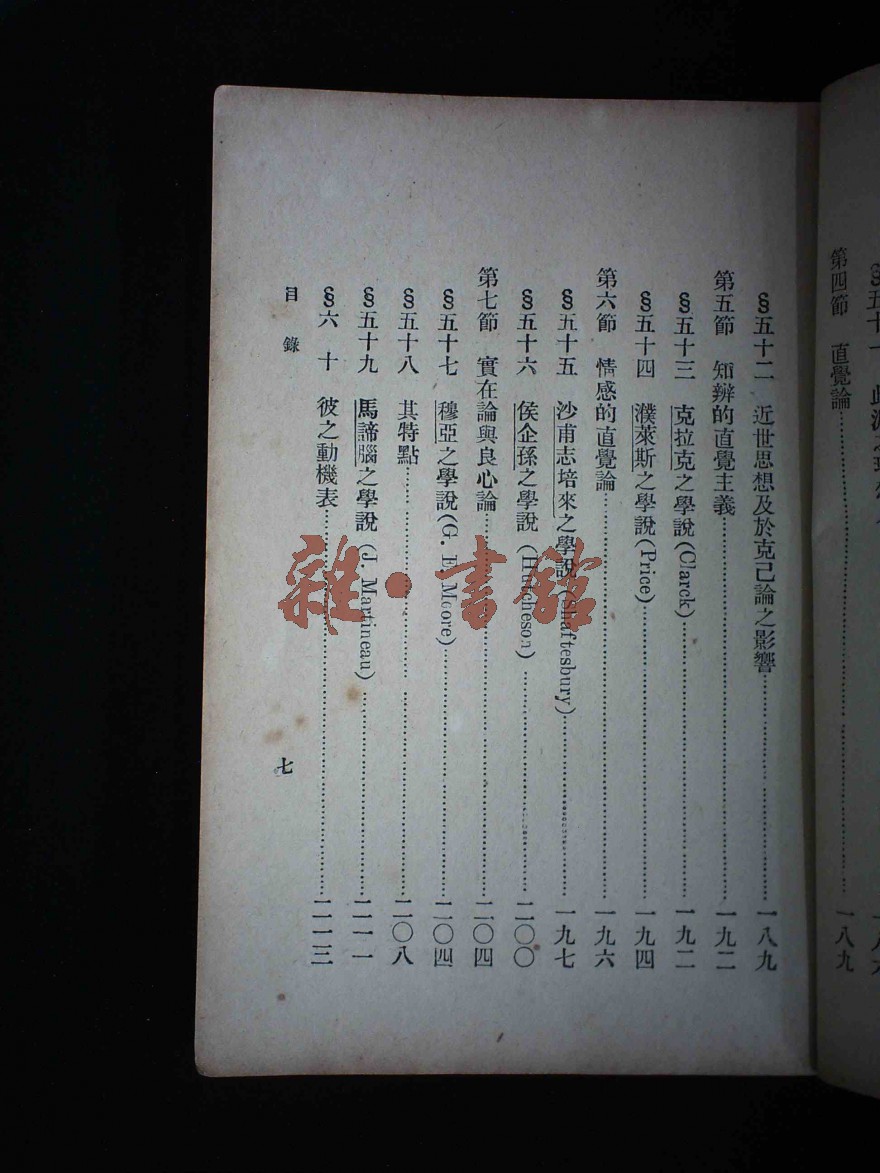 第四節 直覺論 一八九
§五十二 近世思想及於克己論之影響 一八九
第五節 知辨的直覺主義 一九二
§五十三 克拉克之學說(Clarck) 一九二
§五十四 濮萊斯之學說(Price) 一九四
第六節 情感的直覺論 一九六
§五十五 沙甫志培來之學說(Shaftesbury) 一九七
§五十六 侯企孫之學說(Hutcheson) 二〇〇
第七節 實在論與良心論 二〇四
§五十七 穆亞之學說(G. E. Moore) 二〇四
§五十八 其特點 二〇八
§五十九 馬諦腦之學說(J. Martineau) 二一一
§六十 彼之動機表 二一三
目錄 七
雜·書館